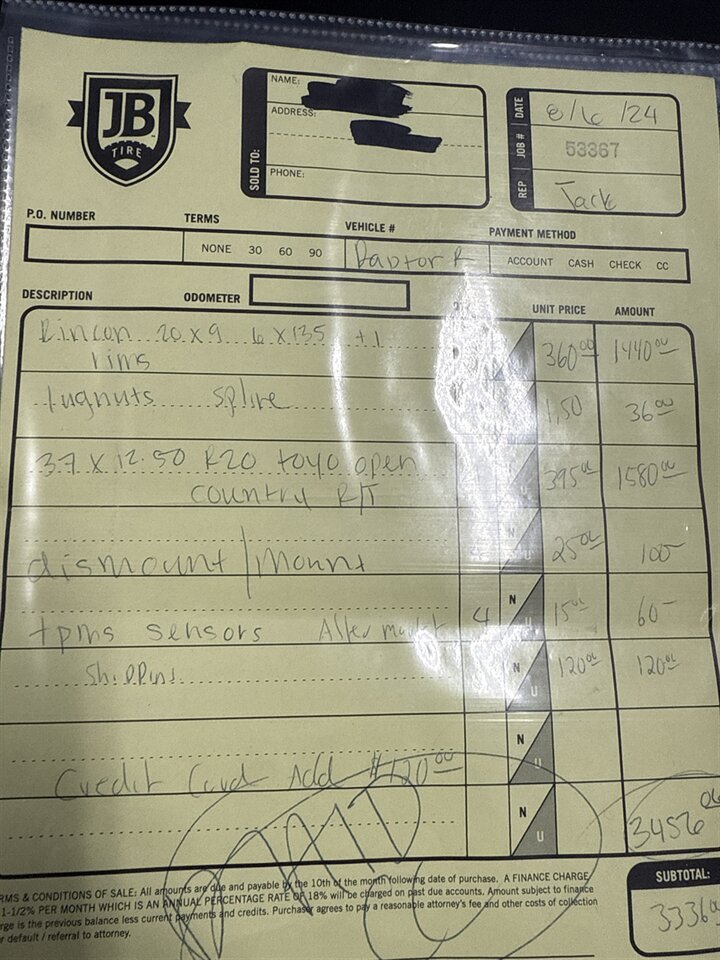 JB
TIRE
SOLD TO:
NAME:
ADDRESS:
PHONE:
DATE 8/6/24
JOB # 53367
REP Jack
P.O. NUMBER TERMS VEHICLE # PAYMENT METHOD
NONE 30 60 90 Raptor R ACCOUNT CASH CHECK CC
DESCRIPTION ODOMETER UNIT PRICE AMOUNT
Rincon 20 x 9 6 x 135 +1 360.00 1440.00
rims
lugnuts spline 1.50 36.00
37 x 12.50 R20 toyo open 395.00 1580.00
country R/T
dismount/mount N U 25.00 100-
tpms sensors After market 4 N U 15.00 60-
Shipping N U 120.00 120.00
N U
Credit Card Add $120.00
N U 3456.00
SUBTOTAL:
3336.00
RMS & CONDITIONS OF SALE: All amounts are due and payable by the 10th of the month following date of purchase. A FINANCE CHARGE
1-1/2% PER MONTH WHICH IS AN ANNUAL PERCENTAGE RATE OF 18% will be charged on past due accounts. Amount subject to finance
rge is the previous balance less current payments and credits. Purchaser agrees to pay a reasonable attorney's fee and other costs of collection
r default / referral to attorney.